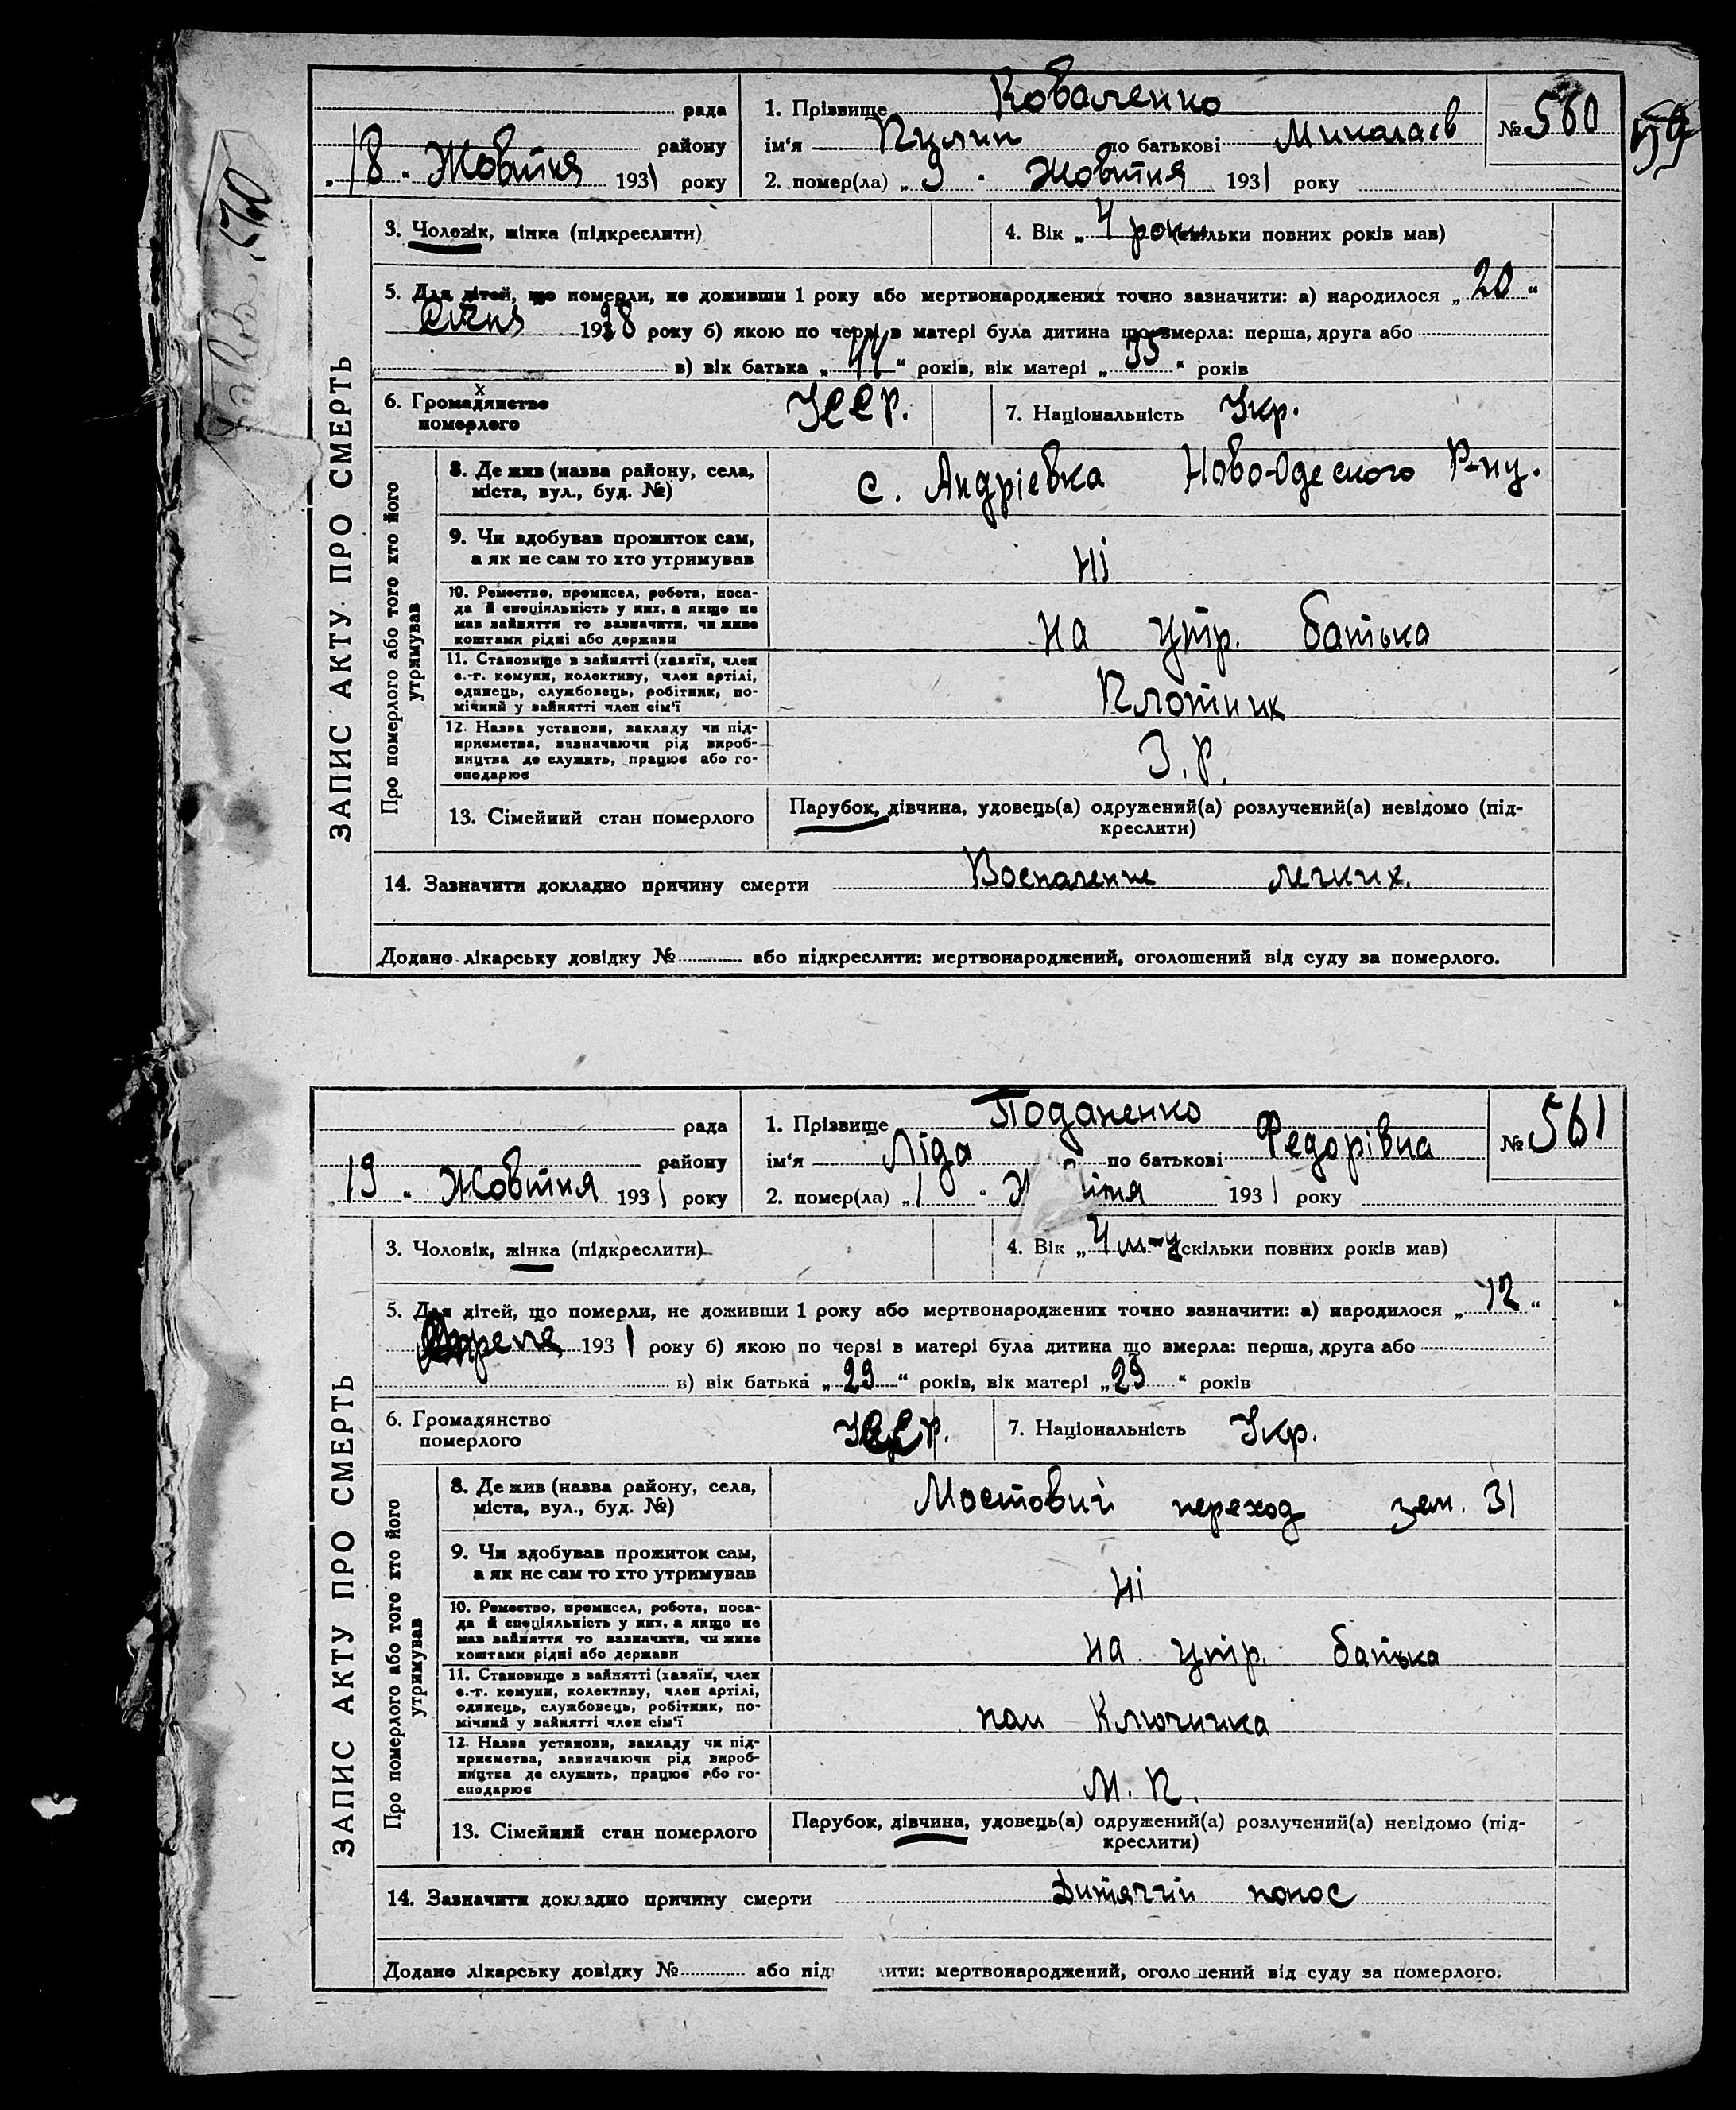 рада
району
„18“ Жовтня 1931 року
1. Прізвище Коваленко
ім‘я по батькові Миколаєв
2. помер(ла) „9“ Жовтня 1931 року
№ 560
59
ЗАПИС АКТУ ПРО СМЕРТЬ
3. Чоловік, жінка (підкреслити)
4. Вік „4 роки (скільки повних років мав)
5. Для дітей, що померли, не доживши 1 року або мертвонароджених точно зазначити: а) народилося „20“
Січня 1928 року б) якою по черзі в матері була дитина що вмерла: перша, друга або
в) вік батька „44“ років, вік матері „35“ років
6. Громадянство
померлого
УССР.
7. Національність Укр.
Про померлого або того хто його
утримував
8. Де жив (назва району, села,
міста, вул., буд. №)
с. Андріевка Ново-Одеского Р-ну.
9. Чи здобував прожиток сам,
а як не сам то хто утримував
Ні
10. Ремество, промисел, робота, поса-
да й спеціяльність у них, а якщо не
мав зайняття то зазначити, чи живе
коштами рідні або держави
на утр. батька
11. Становище в зайнятті (хазяїн, член
с.-г. комуни, колективу, член артілі,
одинець, службовець, робітник, по-
мічний у зайнятті член сім‘ї
Плотник
12. Назва установи, закладу чи під-
приємства, зазначаючи рід вироб-
ництва де служить, працює або го-
сподарює
З. Р.
13. Сімейний стан померлого
Парубок, дівчина, удовець(а) одружений(а) розлучений(а) невідомо (під-
креслити)
14. Зазначити докладно причину смерти Воспаление легких.
Додано лікарську довідку № або підкреслити: мертвонароджений, оголошений від суду за померлого.
рада
району
„19“ Жовтня 1931 року
1. Прізвище Поданенко
ім‘я Ліда по батькові Федорівна
2. помер(ла) „1 1931 року
№ 561
ЗАПИС АКТУ ПРО СМЕРТЬ
3. Чоловік, жінка (підкреслити)
4. Вік „4 м-ц (скільки повних років мав)
5. Для дітей, що померли, не доживши 1 року або мертвонароджених точно зазначити: а) народилося „12“
1931 року б) якою по черзі в матері була дитина що вмерла: перша, друга або
в) вік батька „29“ років, вік матері „29“ років
6. Громадянство
померлого
УССР.
7. Національність Укр.
Про померлого або того хто його
утримував
8. Де жив (назва району, села,
міста, вул., буд. №)
Мостовий переход зем. 31
9. Чи здобував прожиток сам,
а як не сам то хто утримував
Ні
10. Ремество, промисел, робота, поса-
да й спеціяльність у них, а якщо не
мав зайняття то зазначити, чи живе
коштами рідні або держави
на утр. батька
11. Становище в зайнятті (хазяїн, член
с.-г. комуни, колективу, член артілі,
одинець, службовець, робітник, по-
мічний у зайнятті член сім‘ї
12. Назва установи, закладу чи під-
приємства, зазначаючи рід вироб-
ництва де служить, працює або го-
сподарює
М. П.
13. Сімейний стан померлого
Парубок, дівчина, удовець(а) одружений(а) розлучений(а) невідомо (під-
креслити)
14. Зазначити докладно причину смерти Дитячий понос
Додано лікарську довідку № або під ити: мертвонароджений, оголо ений від суду за померлого.